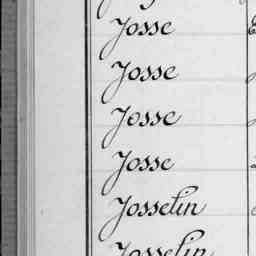 Josse
Josse
Josse
Josse
Josselin
Josselin